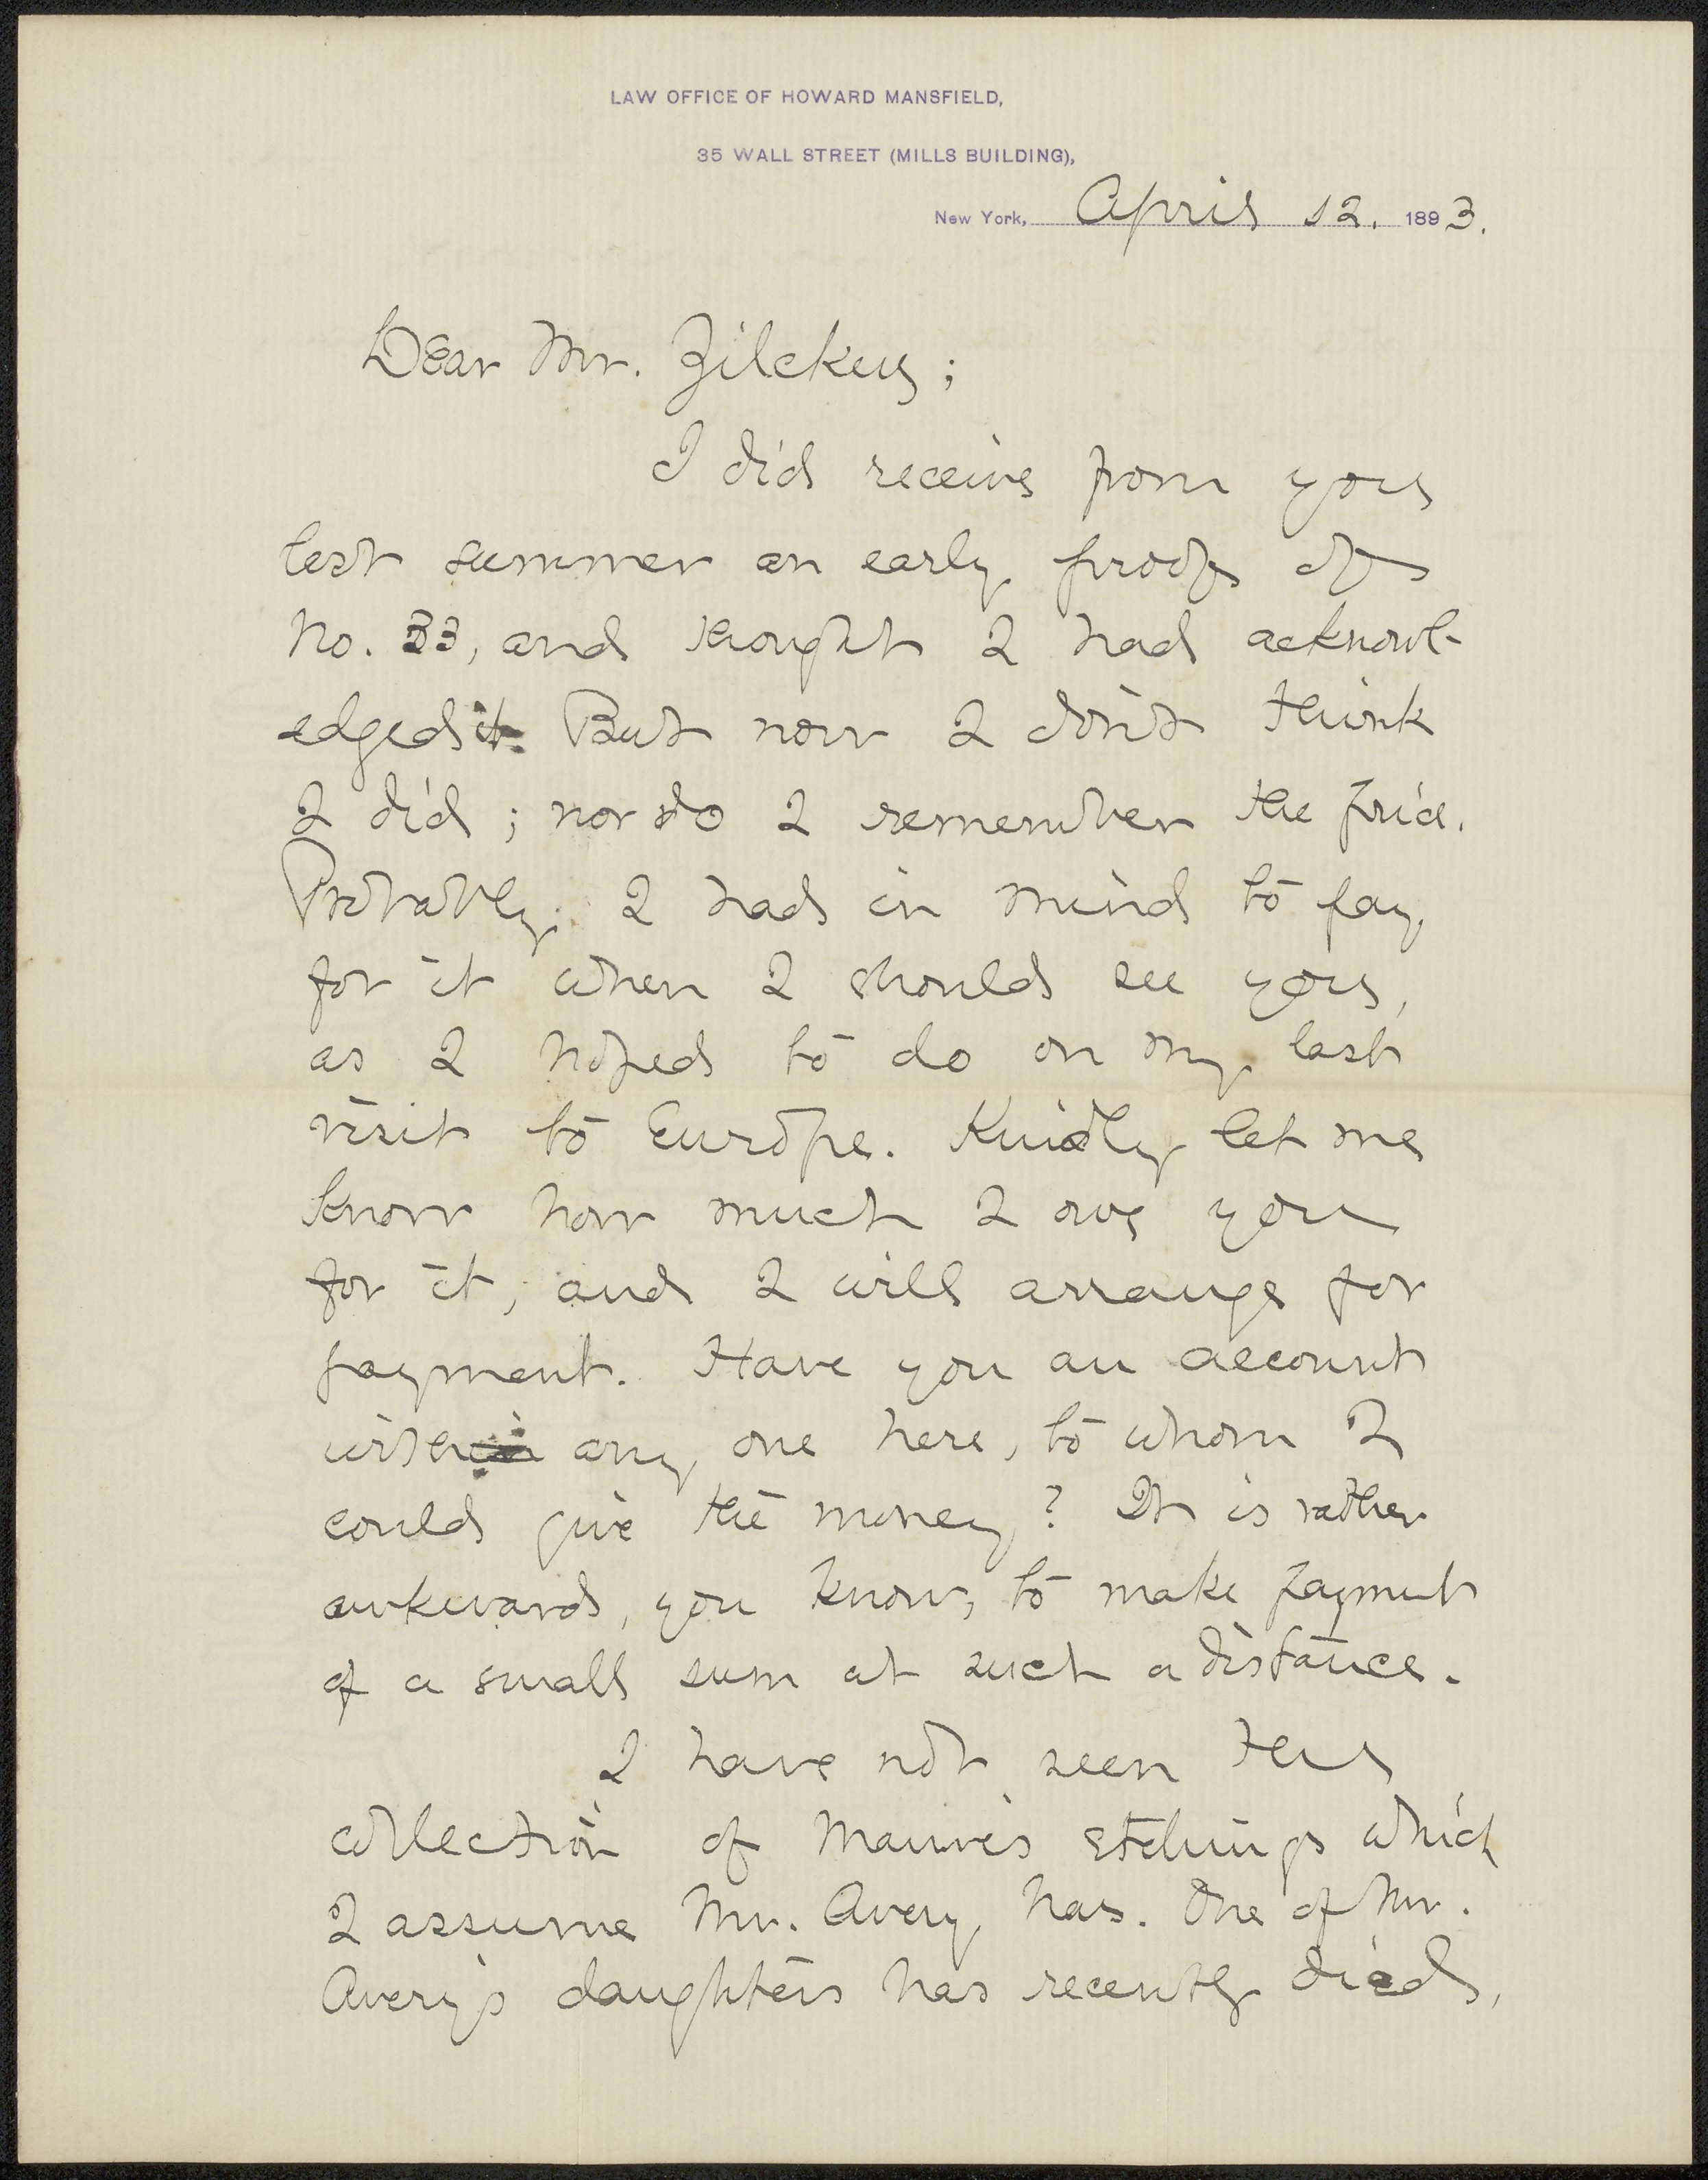 LAW OFFICE OF HOWARD MANSFIELD,
35 WALL STREET (MILLS BUILDING),
New York, April 12. 1893.
Dear Mr. Zilcken;
I did receive from you
last summer an early proof of
No. 33, and thought I had acknowl-
edged it. But now I don't think
I did; nor do I remember the price.
Probably I had in mind to pay
for it when I should see you,
as I hoped to do on my last
visit to Europe. Kindly let me
know how much I owe you
for it, and I will arrange for
payment. Have you an account
with any one here, to whom I
could give the money? It is rather
awkward, you know, to make payment
of a small sum at such a distance.
I have not seen the
collection of Mauve's etchings which
I assume Mr. Avery has. One of Mr.
Avery's daughters has recently died,